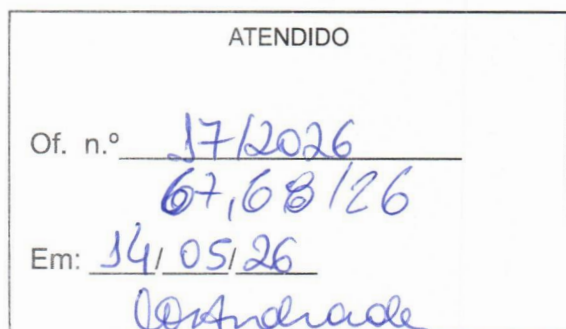 ATENDIDO
Of. n.º 17/2026
67,68/26
Em: 14/05/26